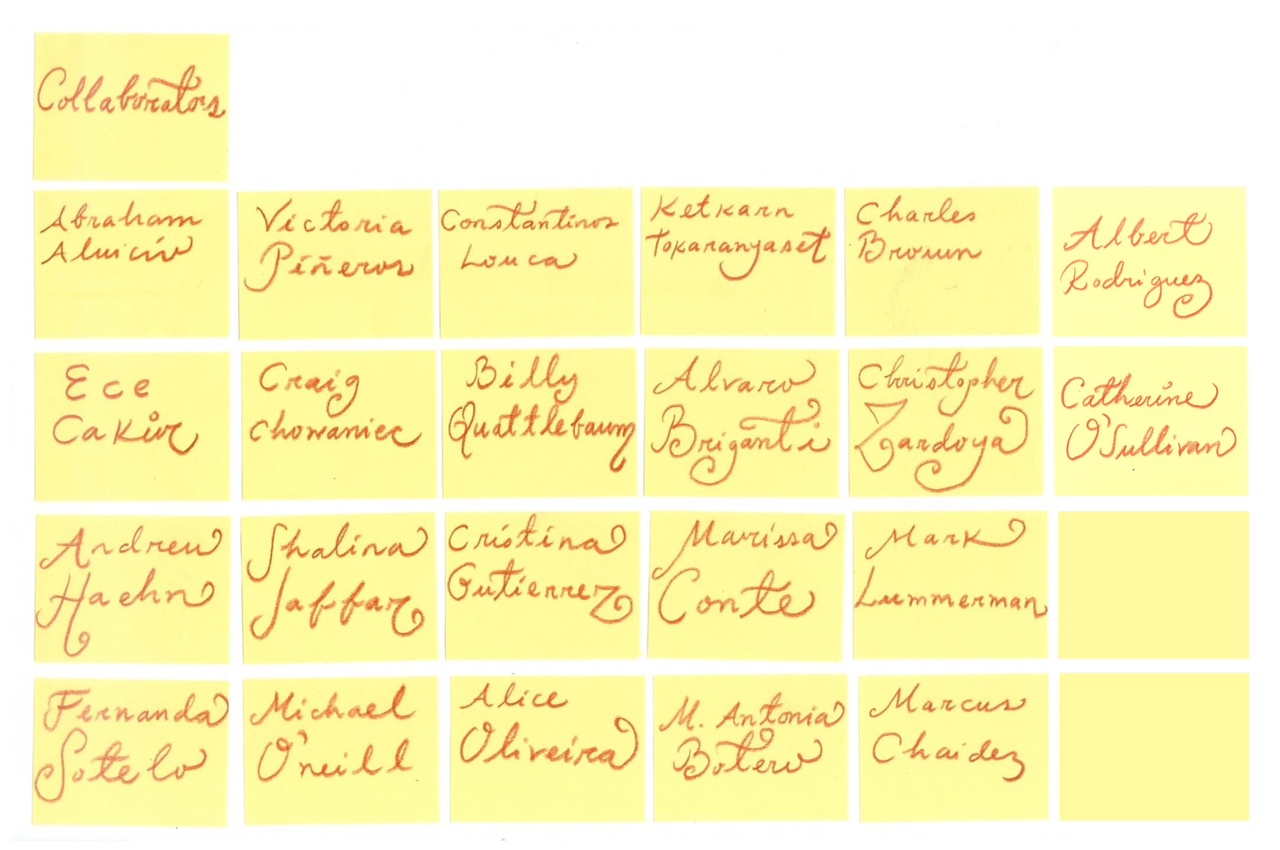 Collaborators
Abraham
Victoria
Piñeros
Constantinos
Louca
Ketkarn
Tokaranyaset
Charles
Brown
Albert
Rodriguez
Ece
Craig
Chowaniec
Billy
Quattlebaum
Alvaro
Briganti
Christopher
Zardoya
Catherine
O'Sullivan
Andrew
Haehn
Shalina
Jaffar
Cristina
Gutierrez
Marissa
Conte
Mark
Lummerman
Fernanda
Sotelo
Michael
O'neill
Alice
Oliveira
M. Antonia
Botero
Marcus
Chaidez